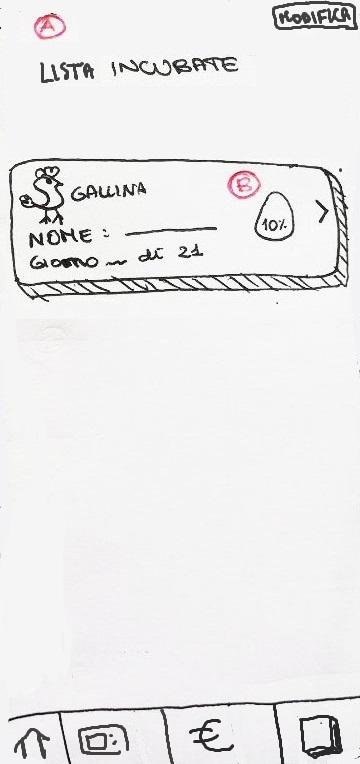 A
MODIFICA
LISTA INCUBATE
GALLINA
B
10%
NOME :
GIORNO di 21
€